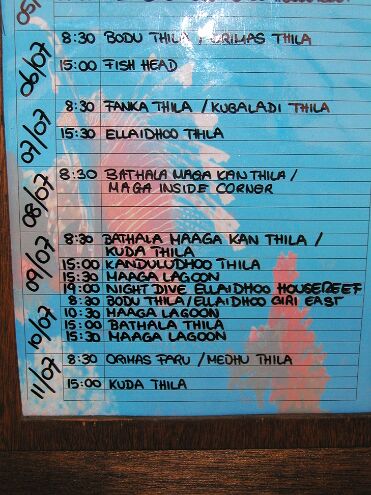 05/
06/07
8:30 BODU THILA / ORIMAS THILA
15:00 FISH HEAD
07/07
8:30 FANKA THILA / KUBALADI THILA
15:30 ELLAIDHOO THILA
08/07
8:30 BATHALA MAGA KAN THILA /
MAGA INSIDE CORNER
09/07
8:30 BATHALA MAAGA KAN THILA /
KUDA THILA
15:00 KANDULUDHOO THILA
15:30 MAAGA LAGOON
19:00 NIGHT DIVE ELLAIDHOO HOUSEREEF
10/07
8:30 BODU THILA/ELLAIDHOO GIRI EAST
10:30 MAAGA LAGOON
15:00 BATHALA THILA
15:30 MAAGA LAGOON
11/07
8:30 ORIMAS FARU / MEDHU THILA
15:00 KUDA THILA